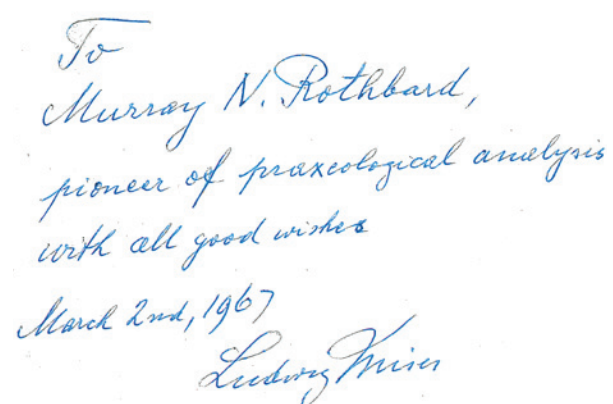 To
Murray N. Rothbard,
pioneer of praxeological analysis
with all good wishes
March 2nd, 1967
Ludwig Mises